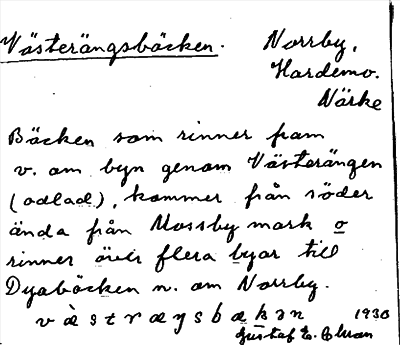 Västerängsbäcken. Norrby,
Hardemo.
Närke
Bäcken som rinner fram
v. om byn genom Västerängen
(odlad), kommer från söder
ända från Mossby mark o
rinner över flera byar till
Dyabäcken n. om Norrby.
væ̀stræŋsbækən 1930
Gustaf E.